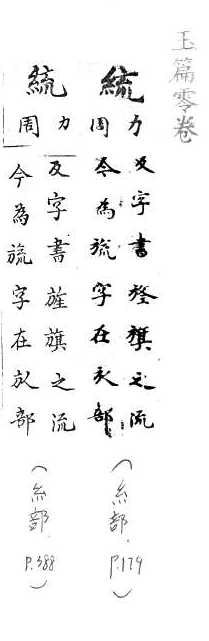 玉篇零卷
力
周
及字書旌旗之流
今為旒字在㫃部
(糸部 P.179)
力
周
及字書旌旗之流
今為旒字在㫃部
(糸部 P.388)